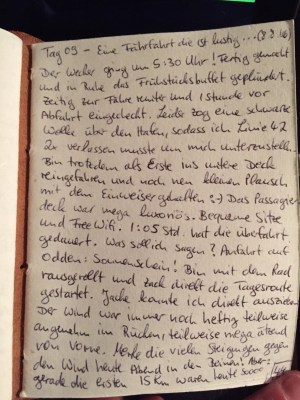 Tag 09 - Eine Fährfahrt die ist lustig... (8.8.16)
Der Wecker ging um 5:30 Uhr! Fertig gemacht
und in Ruhe das Frühstücksbuffet geplündert.
Zeitig zur Fähre runter und 1 Stunde vor
Abfahrt eingecheckt. Leider zog eine schwarze
Wolke über den Hafen, sodass ich Linie 42
2x verlassen musste um mich unterzustellen.
Bin trotzdem als Erste ins untere Deck
reingefahren und noch nen kleinen Plausch
mit dem Einweiser gehalten :-) Das Passagier-
deck war mega luxoriös. Bequeme Sitze
und Free Wifi. 1:05 Std. hat die Überfahrt
gedauert. Was soll ich sagen? Anfahrt auf
Odden: Sonnenschein! Bin mit dem Rad
rausgerollt und zack direkt die Tagesroute
gestartet. Jacke konnte ich direkt ausziehen.
Der Wind war immer noch heftig teilweise
angenehm im Rücken, teilweise mega ätzend
von Vorne. Merke die vielen Steigungen gegen
den Wind heute Abend in den Beinen! Aber:
gerade die ersten 15 Km waren heute soooo